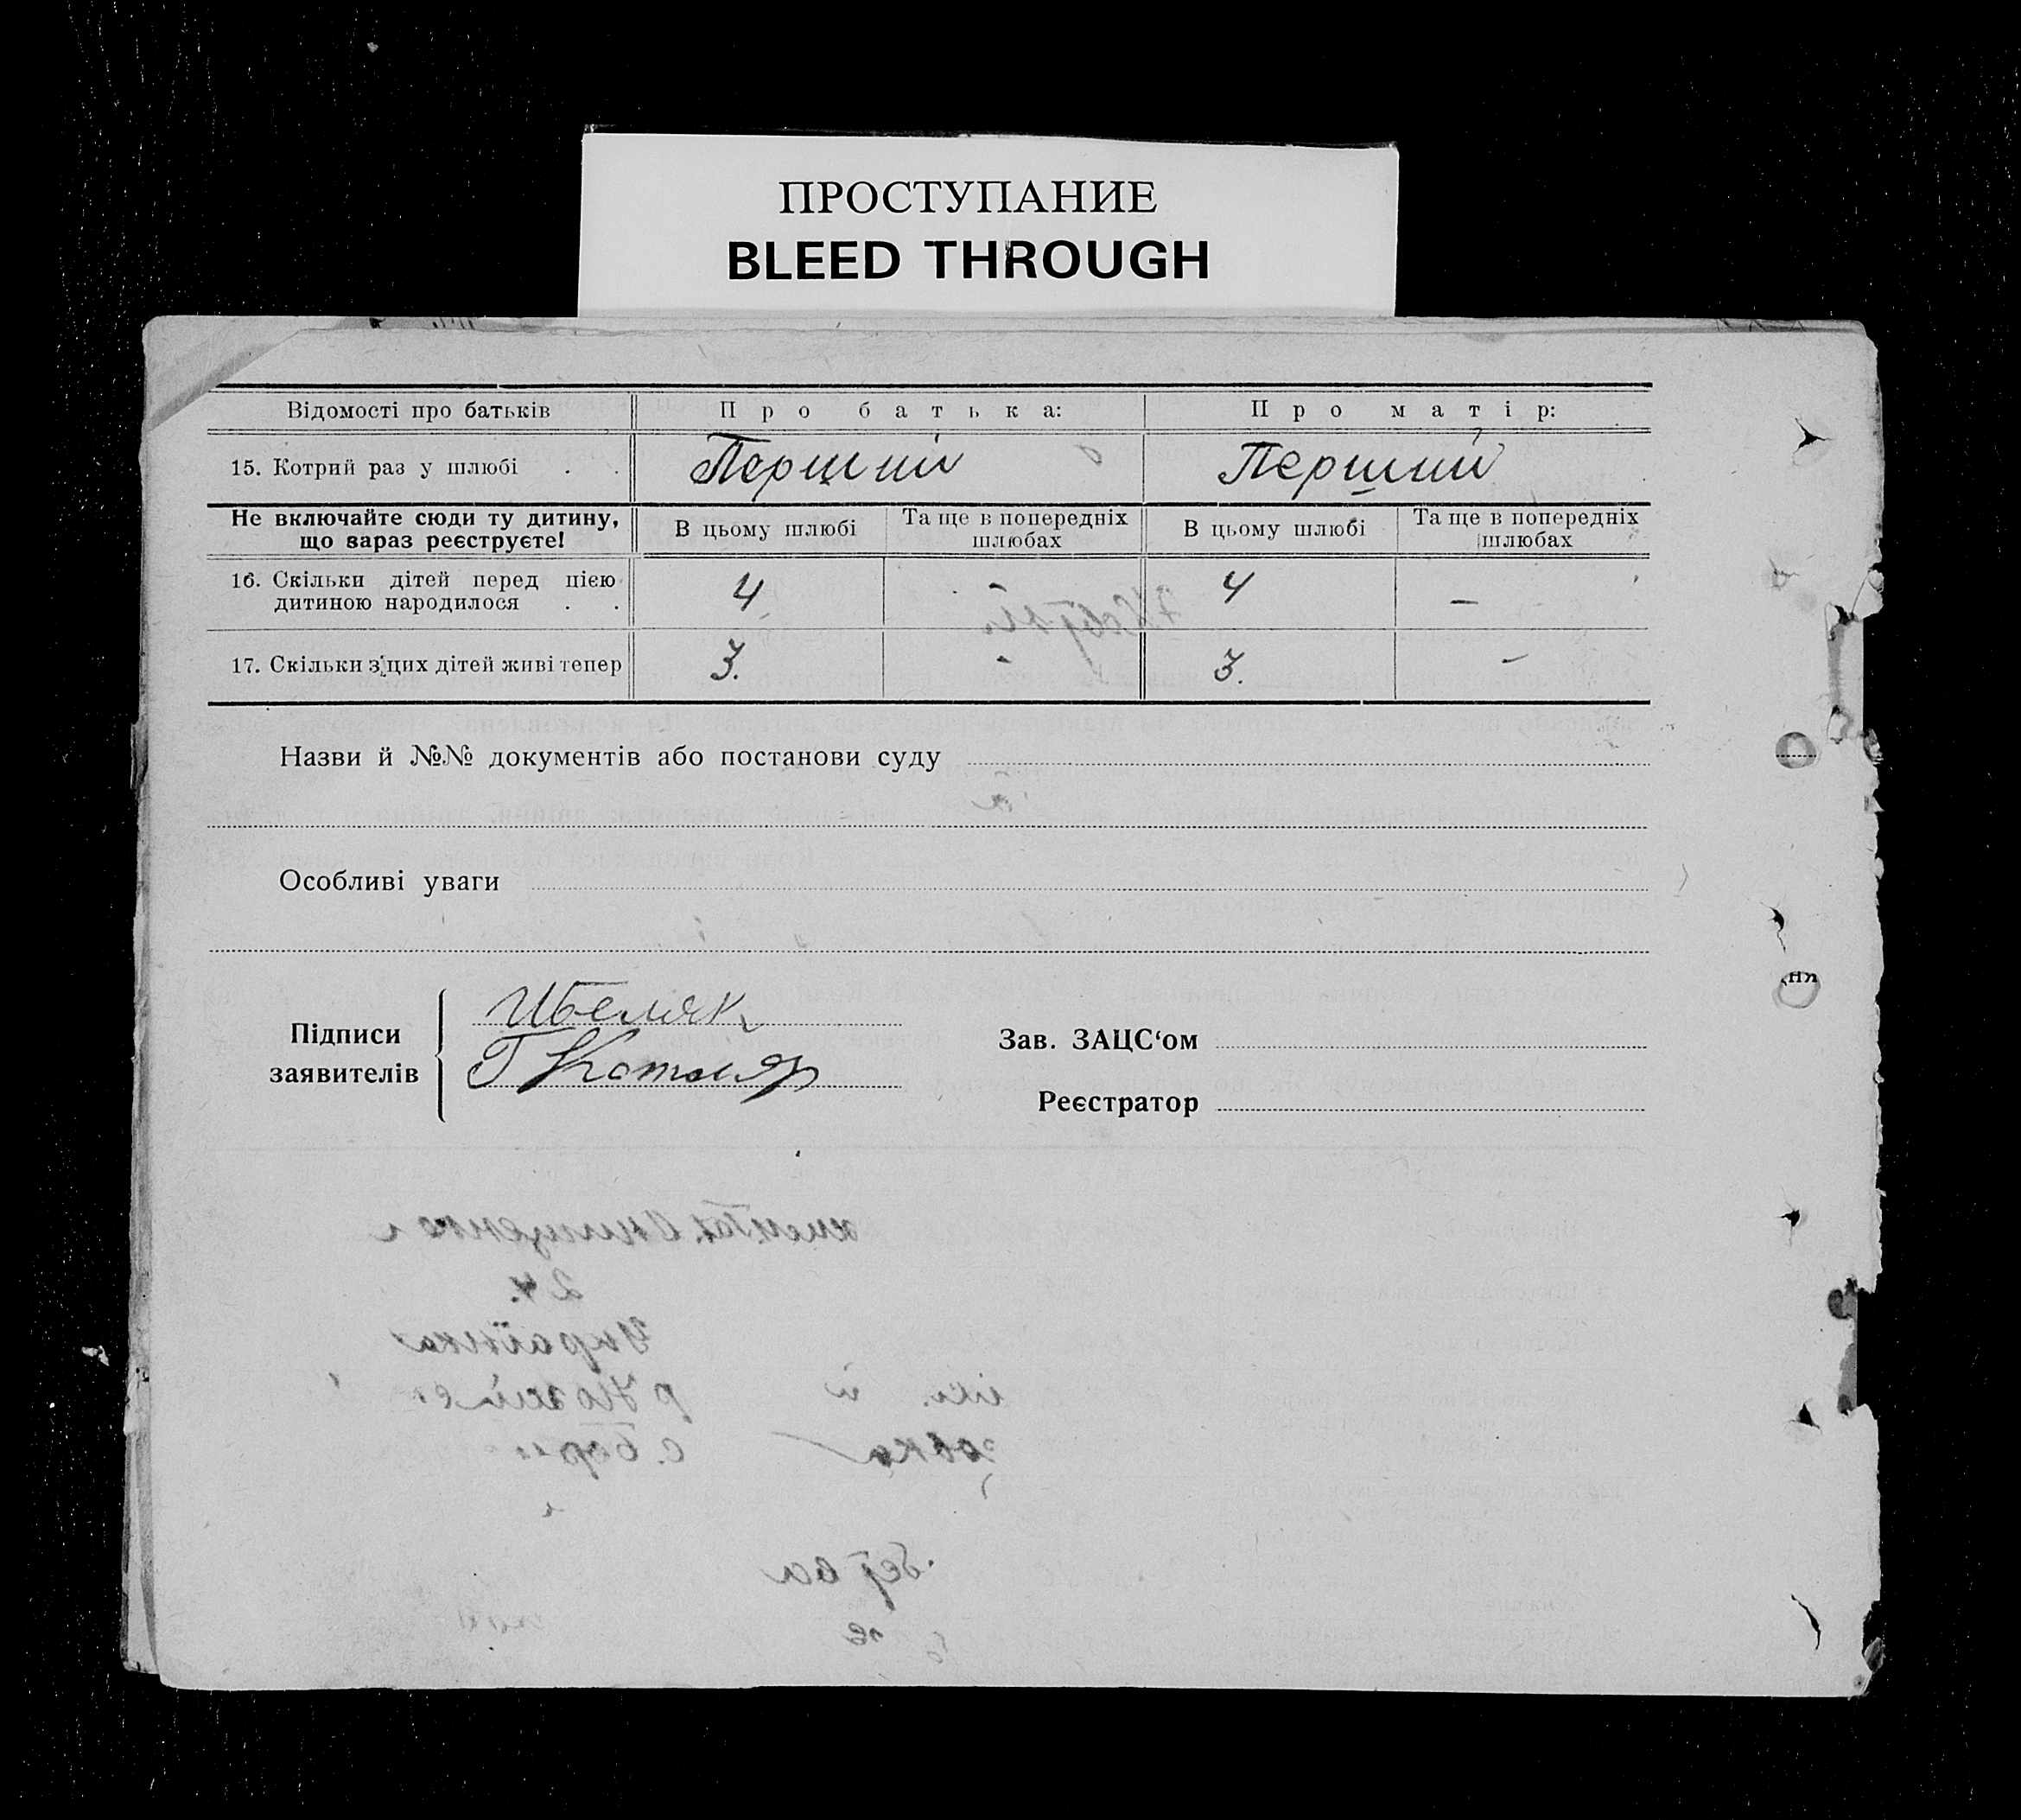 ПРОСТУПАНИЕ
BLEED THROUGH
Відомості про батьків Про батька: Про матір:
15. Котрий раз у шлюбі . . Перший Перший
Не включайте сюди ту дитину, що вараз реєструєте! В цьому шлюбі Та ще в попередніх шлюбах В цьому шлюбі Та ще в попередніх шлюбах
16. Скільки дітей перед цією
дитиною народилося . . 4 - 4 -
17. Скільки з цих дітей живі тепер 3. - 3. -
Назви й №№ документів або постанови суду
Особливі уваги
Підписи заявителів
ИБеляк
Г Котляр
Зав. ЗАЦС‘ом
Реєстратор
ня